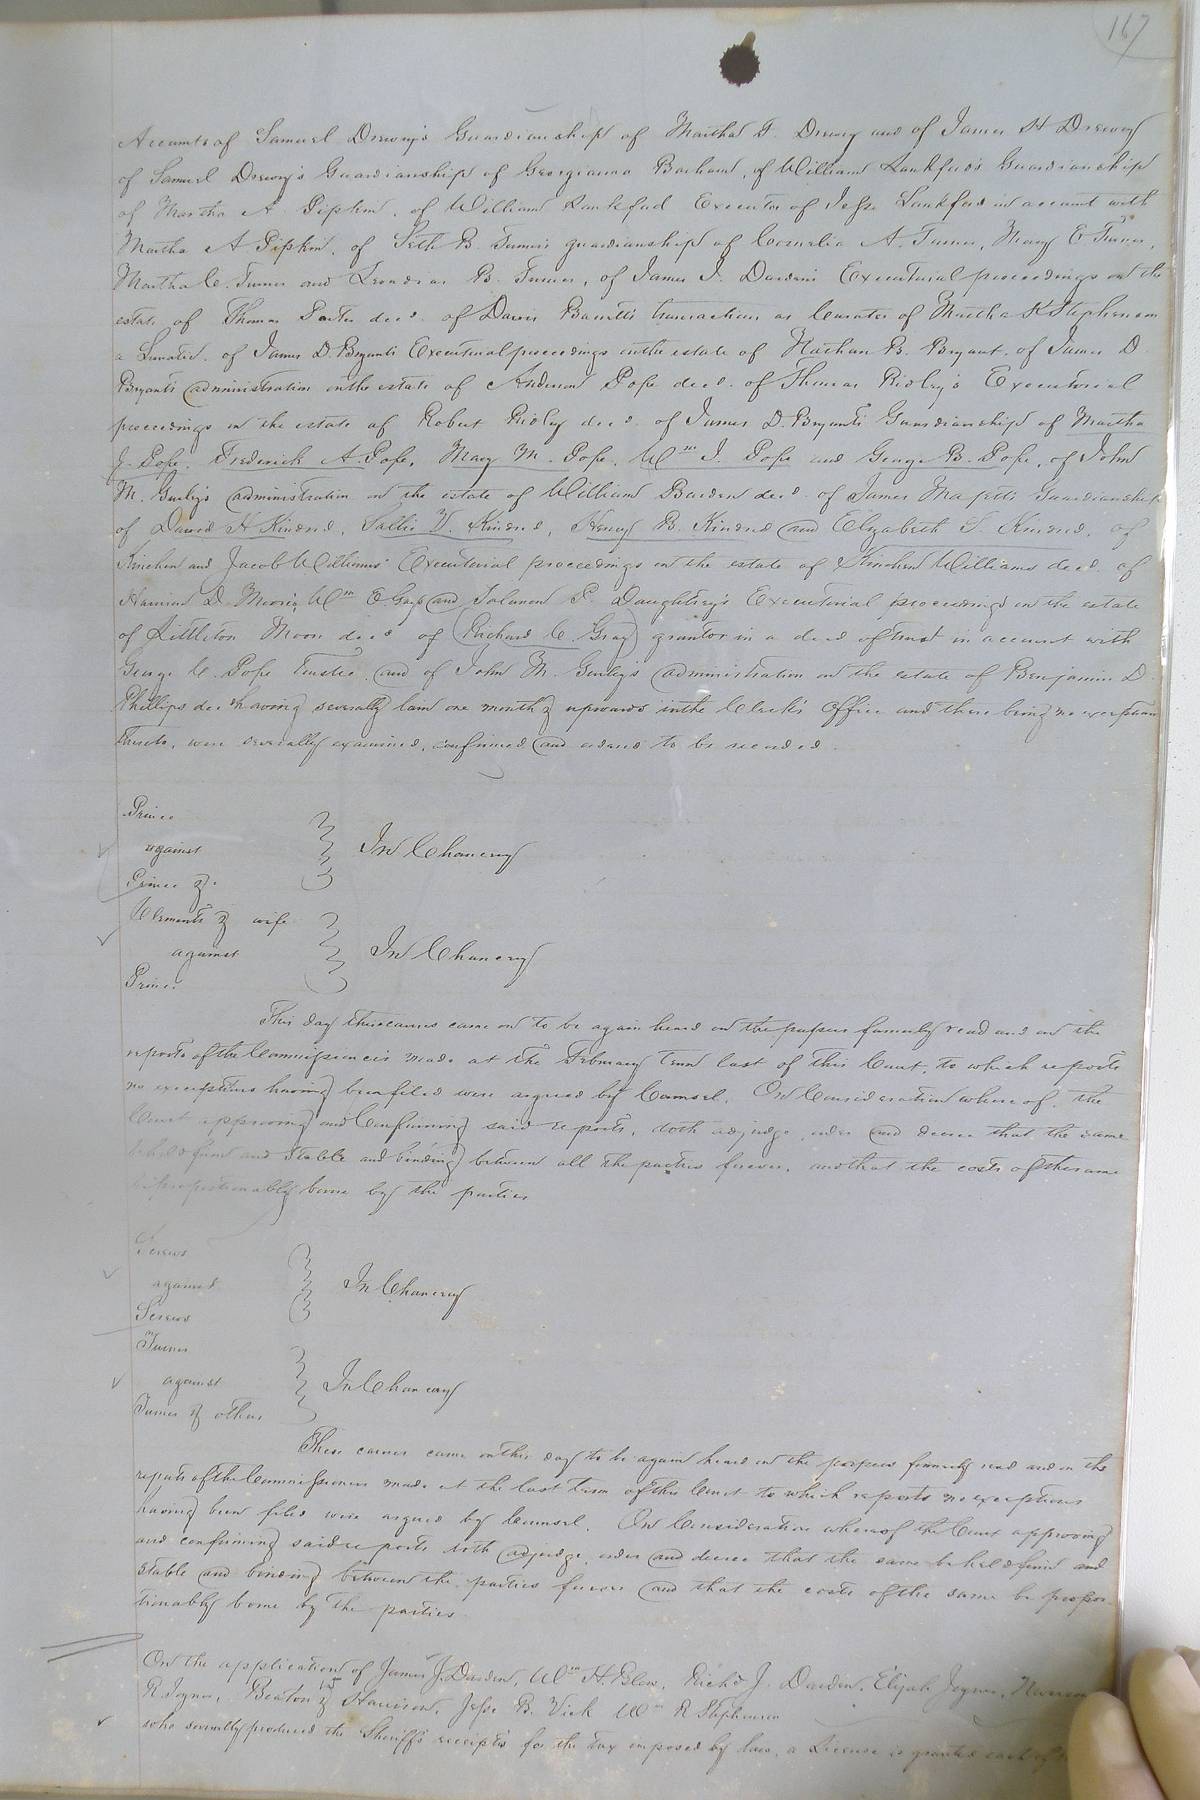 167
Accounts of Samuel Drewry's Guardianship of Martha F. Drewry and of James H Drewry
of Samuel Drewry's Guardianship of Georgianna Barham, of William Lankford's Guardianship
of Martha A Pipkin, of William Lankford Executor of Jesse Lankford in account with
Martha A Pipkin, of Seth B. Turner's guardianship of Cornelia A. Turner, Mary E Turner,
Martha C. Turner and B. Turner, of James J. Darden's Executorial proceedings on the
estate of Thomas Porter decd. of Davis Barrett's transactions as Curator of Martha K Stephenson
a Lunatic. of James D. Bryant's Executorial proceedings on the estate of Nathan B. Bryant. of James D
Bryant's administration on the estate of Anderson Pope decd. of Thomas Ridley's Executorial
proceedings on the estate of Robert Ridley decd. of James D. Bryant's Guardianship of Martha
J. Pope, Frederick A. Pope, Mary M. Pope, Wm J. Pope and George B. Pope, of John
M. Gurley's administration on the estate of William Barden decd. of James Majett's Guardianship
of David H Kindred, Sallie V. Kindred, Henry B. Kindred and Elizabeth S. Kindred, of
Kinchen and Jacob Williams' Executorial proceedings on the estate of Kinchen Williams decd. of
Harrison D. Moore, Wm E Gay and Solomon P. Daughtrey's Executorial proceedings on the estate
of Littleton Moore decd of Richard C. Gray grantor in a deed of trust in account with
George C. Pope Trustee, and of John M. Gurley's administration on the estate of Benjamin D.
Phillips decd having severally lain one month & upwards in the Clerk's Office and there being no exceptions
thereto, were severally examined, confirmed and ordered to be recorded.
Prince
against
In Chancery
Prince &.
Clements & wife
against
In Chancery
Prince
This day these causes came on to be again heard on the papers formerly read and on the
reports of the Commissioners made at the February Term last of this Court, to which reports
no exceptions having been filed were argued by Counsel. On Consideration whereof, the
Court approving and Confirming said reports, doth adjudge, order and decree that the same
be held firm and Stable and binding between all the parties forever, and that the costs of the same
be proportionably borne by the parties
Screws
against
In Chancery
Screws
Turner
against
In Chancery
Turner & others
These causes came on this day to be again heard on the papers formerly read and on the
reports of the Commissioners made at the last Term of this Court to which reports no exceptions
having been filed were argued by Counsel. On Consideration whereof the Court approving
and confirming said reports doth adjudge, order and decree that the same be held firm and
stable and binding between the parties forever and that the costs of the same be propor-
tionably borne by the parties
On the application of James J. Darden, Wm H. Blow, Richd J. Darden, Elijah Joyner,
R Joyner, Beaton & Harrison, Jesse B. Vick Wm R Stephenson
who severally produced the Sheriff's receipts for the tax imposed by law, a License is granted each of